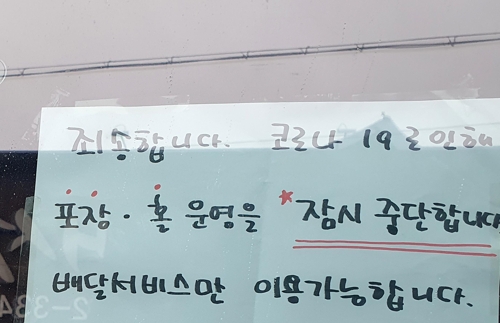 죄송합니다. 코로나 19로 인해
포장·홀 운영을 *잠시 중단합니다
배달서비스만 이용가능합니다.
2-334